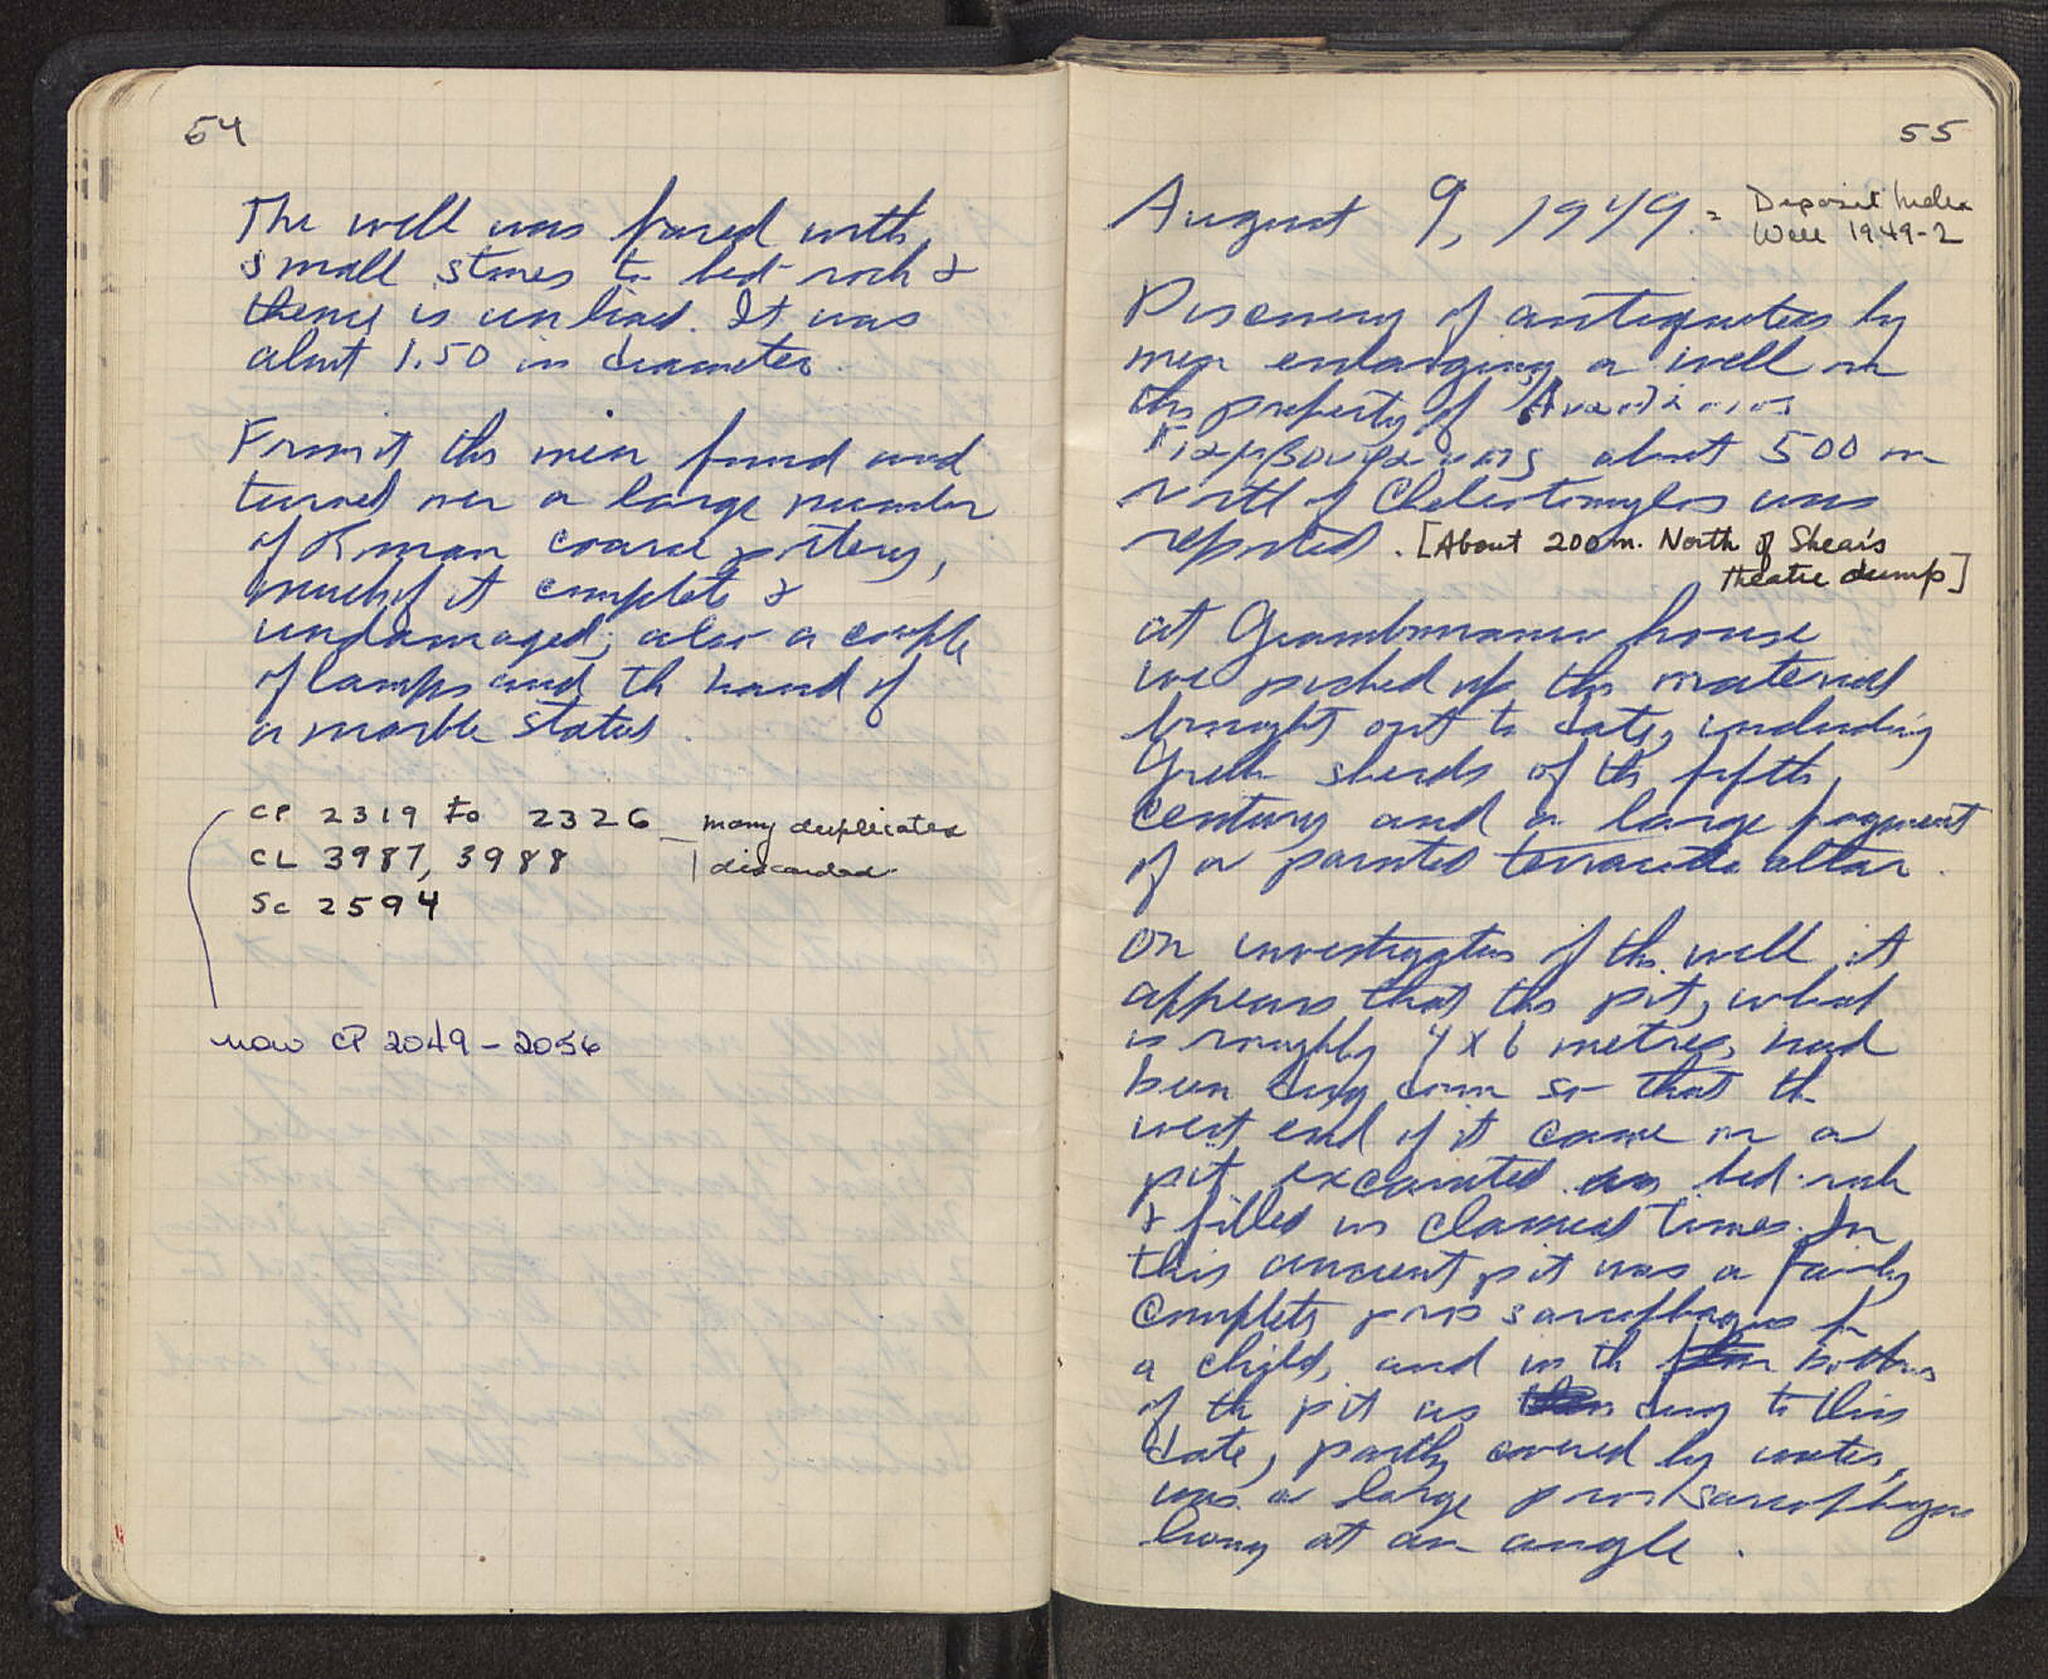 54
The well was faced with
small stones to bed-rock &
thence is unlined. It was
about 1.50 in diameter.
From it the men found and
turned over a large number
of Roman coarse pottery,
much of it complete &
undamaged; also a couple
of lamps and the hand of
a marble statue.
CP 2319 to 2326 - many duplicates
CL 3987, 3988 discarded
Sc 2594
now CP 2049-2056
55
August 9, 1949 = Deposit Index
Well 1949-2
Discovery of antiquities by
men enlarging a well on
the property of
about 500 m
north of Cheliotomylos was
reported. [About 200 m. North of Shear's
theatre dump]
at house
we picked up the material
brought out to date, including
Greek sherds of the fifth
century and a large fragment
of a painted terracotta altar.
On investigation of the well it
appears that the pit, which
is roughly 4 x 6 metres, had
been dug down so that the
west end of it came on a
pit excavated in bed-rock
& filled in classical times. In
this ancient pit was a fairly
complete poros sarcophagus for
a child, and in the bottom
of the pit as dug to this
date, partly covered by water,
was a large poros sarcophagus
lying at an angle.